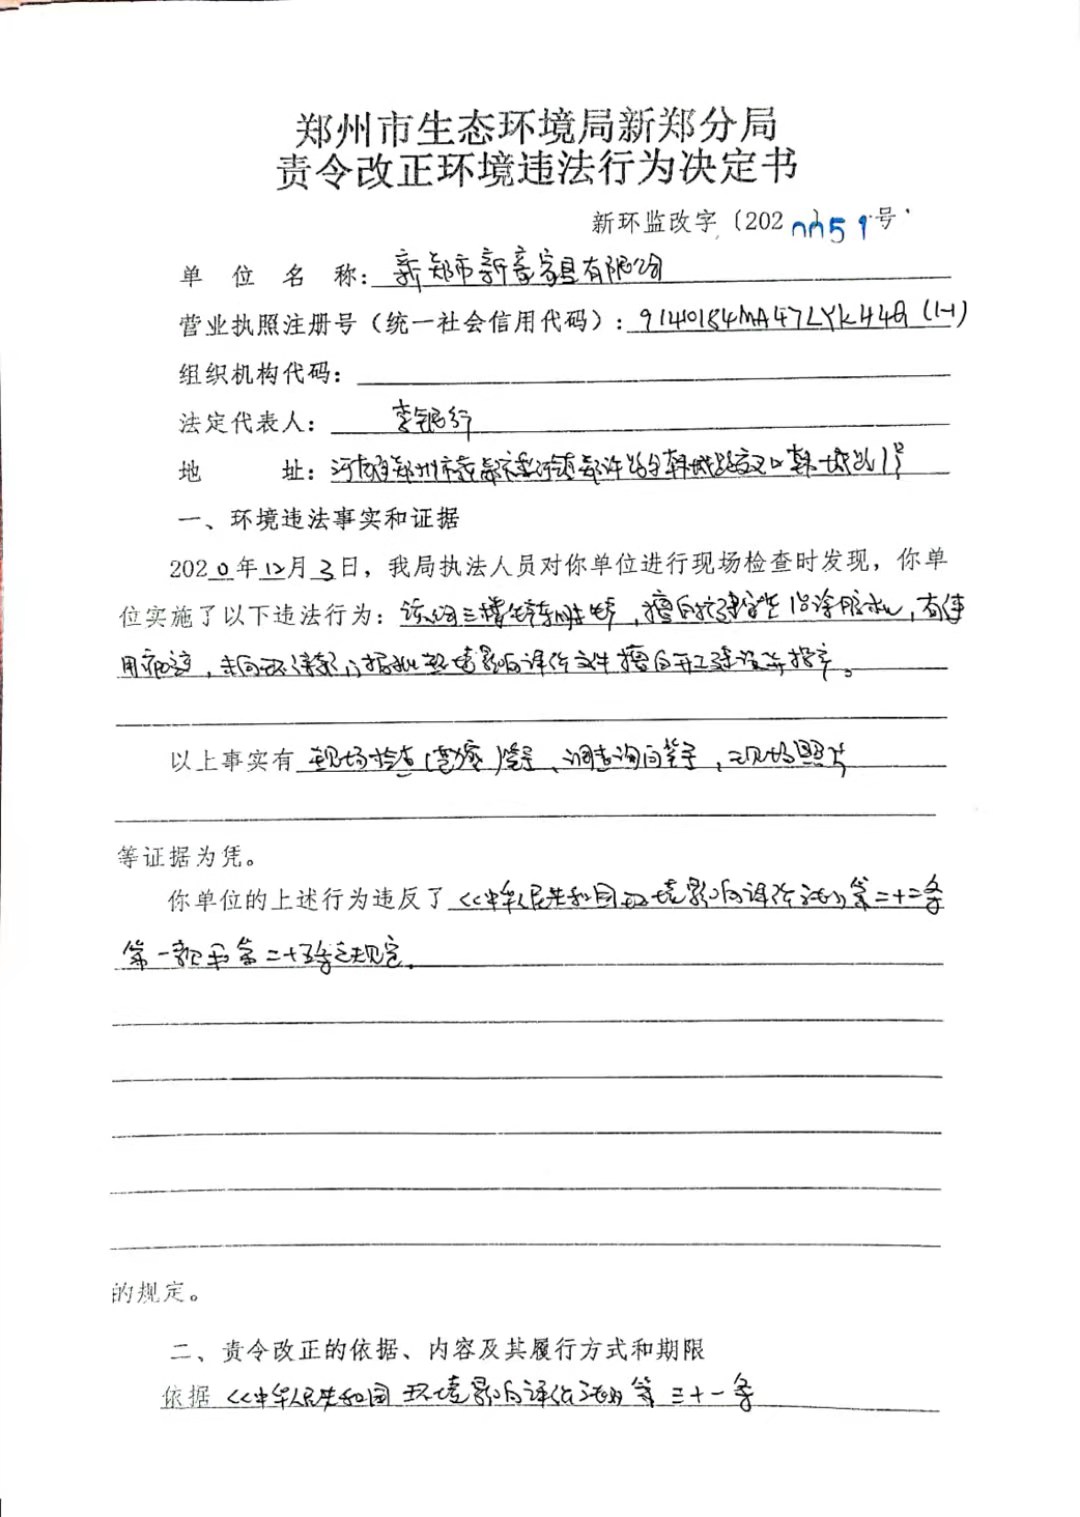 郑州市生态环境局新郑分局
责令改正环境违法行为决定书
新环监改字〔2020051号
单位名称：新郑市新豪家具有限公司
营业执照注册号（统一社会信用代码）：91410184MA47LYK44Q (1-1)
组织机构代码：
法定代表人：李银行
地址：河南省郑州市新郑市梨河镇郑许路与韩城路交叉口韩城路1号
一、环境违法事实和证据
2020年12月3日，我局执法人员对你单位进行现场检查时发现，你单
位实施了以下违法行为：该公司三楼车间，擅自扩建涂胶机，有使
用痕迹，未向环保部门报批环境影响评价文件擅自开工建设并投产。
以上事实有 现场检查（勘察）笔录、调查询问笔录，现场照片
等证据为凭。
你单位的上述行为违反了《中华人民共和国环境影响评价法》第二十二条
第一款和第二十五条之规定.
的规定。
二、责令改正的依据、内容及其履行方式和期限
依据《中华人民共和国环境影响评价法》第三十一条